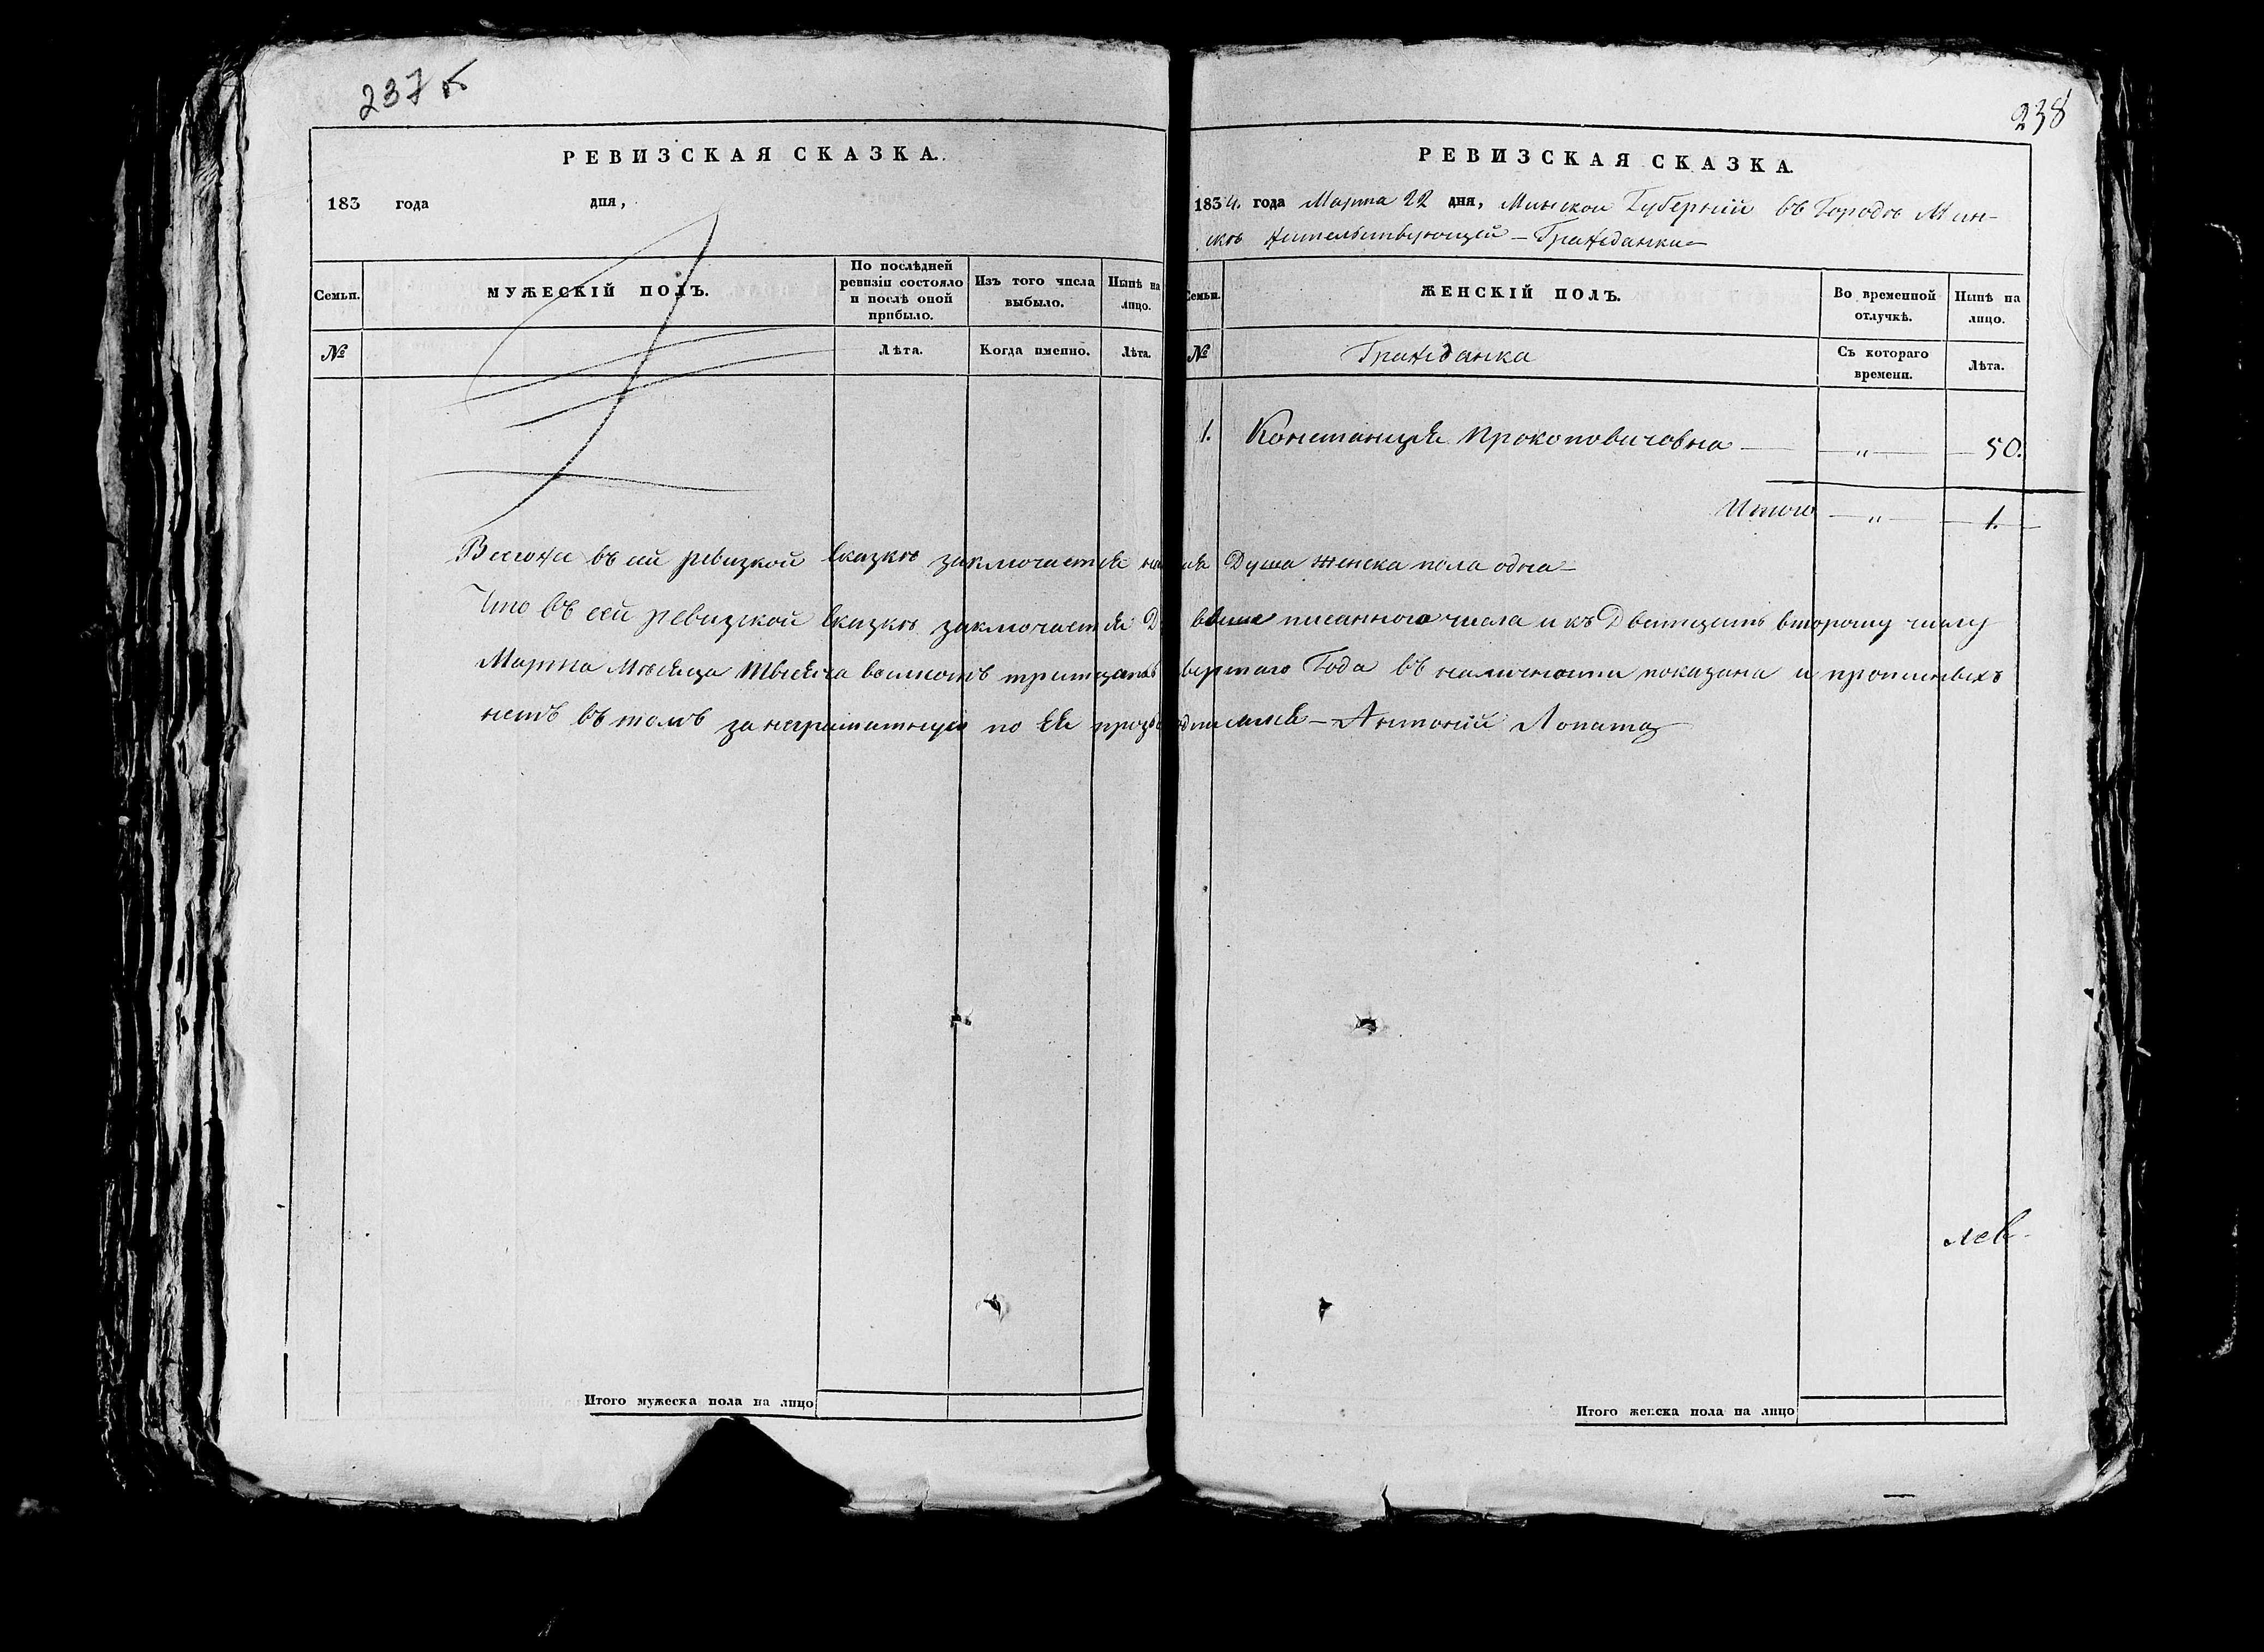 237 б
РЕВИЗСКАЯ СКАЗКА.
183 года дня,
Семьи. МУЖЕСКІЙ ПОЛЪ. По послѣдней ревизіи состояло и послѣ оной прибыло. Изъ того числа выбыло. Нынѣ на лицо.
№ Лѣта. Когда именно. Лѣта.
238
РЕВИЗСКАЯ СКАЗКА.
1834. года Марта 22 дня, Минской Губерніи въ Городѣ Мин-
скѣ жительствующей – Гражданки –
Семьи. ЖЕНСКІЙ ПОЛЪ. Во временной отлучкѣ. Нынѣ на лицо.
№ Гражданка Съ котораго времени. Лѣта.
1. Констанція Прокоповичовна — „ — 50.
Итого — „ — 1.
Всегоже въ сей ревизкой сказкѣ заключается Душа женска пола одна –
Что въ сей ревизкой сказкѣ заключается выше писанного числа и къ Дватцать второму числу
Марта Мѣсяца тысяча восмсотъ тритцать вертаго Года въ наличности показана и прописныхъ
нетъ въ томъ за неграматную по Ея прозь одписался – Антоній Лопата
лев.
Итого мужеска пола на лицо
Итого женска пола на лицо